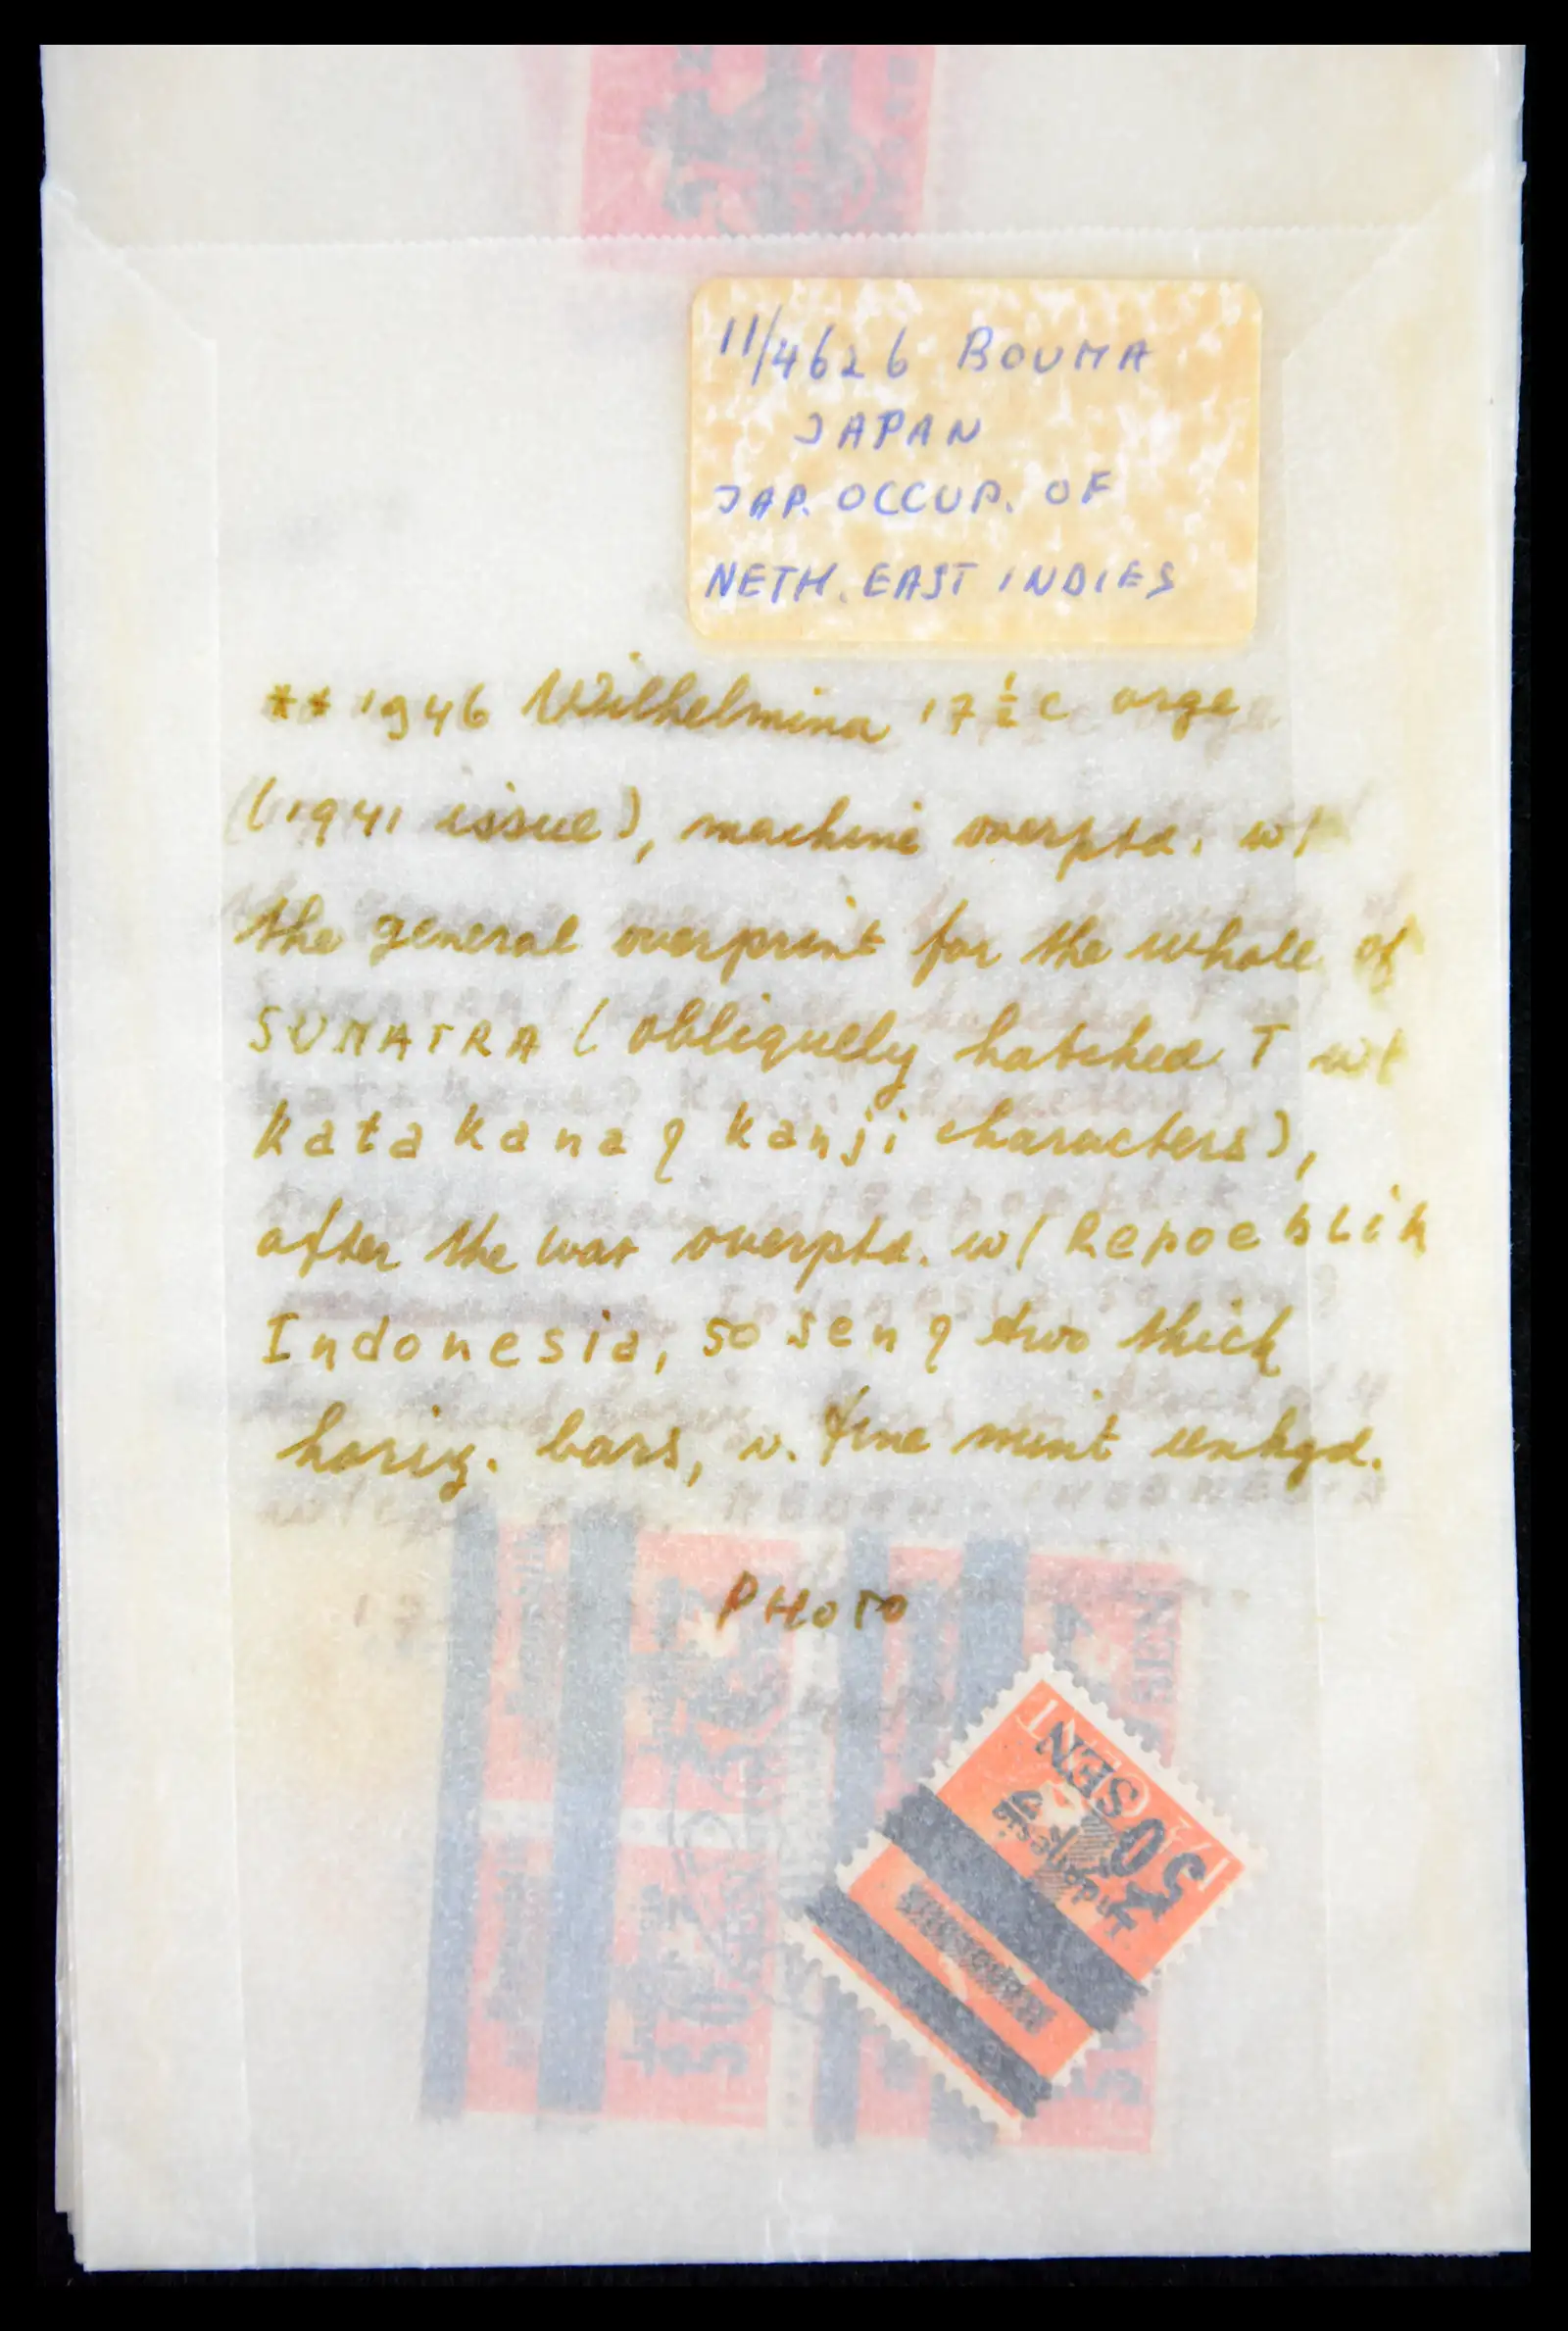 11/4626 BOUMA
JAPAN
JAP. OCCUP. OF
NETH. EAST INDIES
** 1946 Wilhelmina 17 ½ c orge
(1941 issue), machine overptd. w/
the general overprint for the whole of
SUMATRA (obliquely hatched T w/
katakana & kanji characters),
after the war overptd. w/ Repoeblik
Indonesia, 50 sen & two thick
horiz. bars, v. fine mint unhgd.
PHOTO
50 SEN
Indonesia